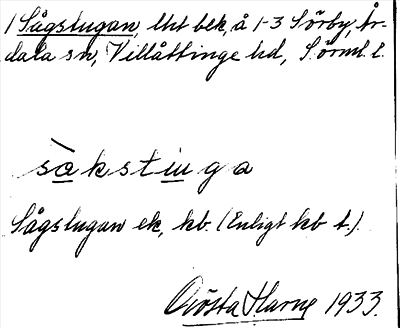 1 Sågstugan, lht bek, å 1-3 Sörby, År-
dala sn, Villåttinge hd, Sörml. l.
såkstuga
Sågstugan ek, kb. (Enligt kb t.).
Gösta Harne 1933.